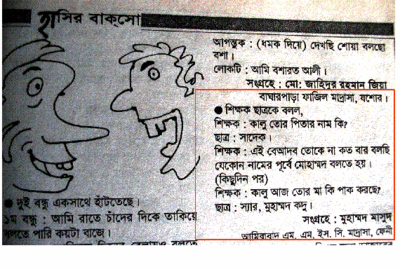 হাসির বাক্সো
আগন্তুক : (ধমক দিয়ে) দেখছি শোয়া বলছো
বশা।
লোকটি : আমি বশারত আলী।
সংগ্রহে : মো: জাহিদুর রহমান জিয়া
বাঘারপাড়া ফাজিল মাদ্রাসা, যশোর।
● শিক্ষক ছাত্রকে বলল,
শিক্ষক : কালু তোর পিতার নাম কি?
ছাত্র : সাদেক।
শিক্ষক : এই বেআদব তোকে না কত বার বলছি
যেকোন নামের পূর্বে মোহাম্মদ বলতে হয়।
(কিছুদিন পর)
শিক্ষক : কালু আজ তোর মা কি পাক করছে?
ছাত্র : স্যার, মুহাম্মদ কদু।
সংগ্রহে : মুহাম্মদ মাসুদ
আমিরাবাদ এম. এম. ইস. সি. মাদ্রাসা, ফেনী
● দুই বন্ধু একসাথে হাঁটতেছে।
১ম বন্ধু : আমি রাতে চাঁদের দিকে তাকিয়ে
বলতে পারি কয়টা বাজে।